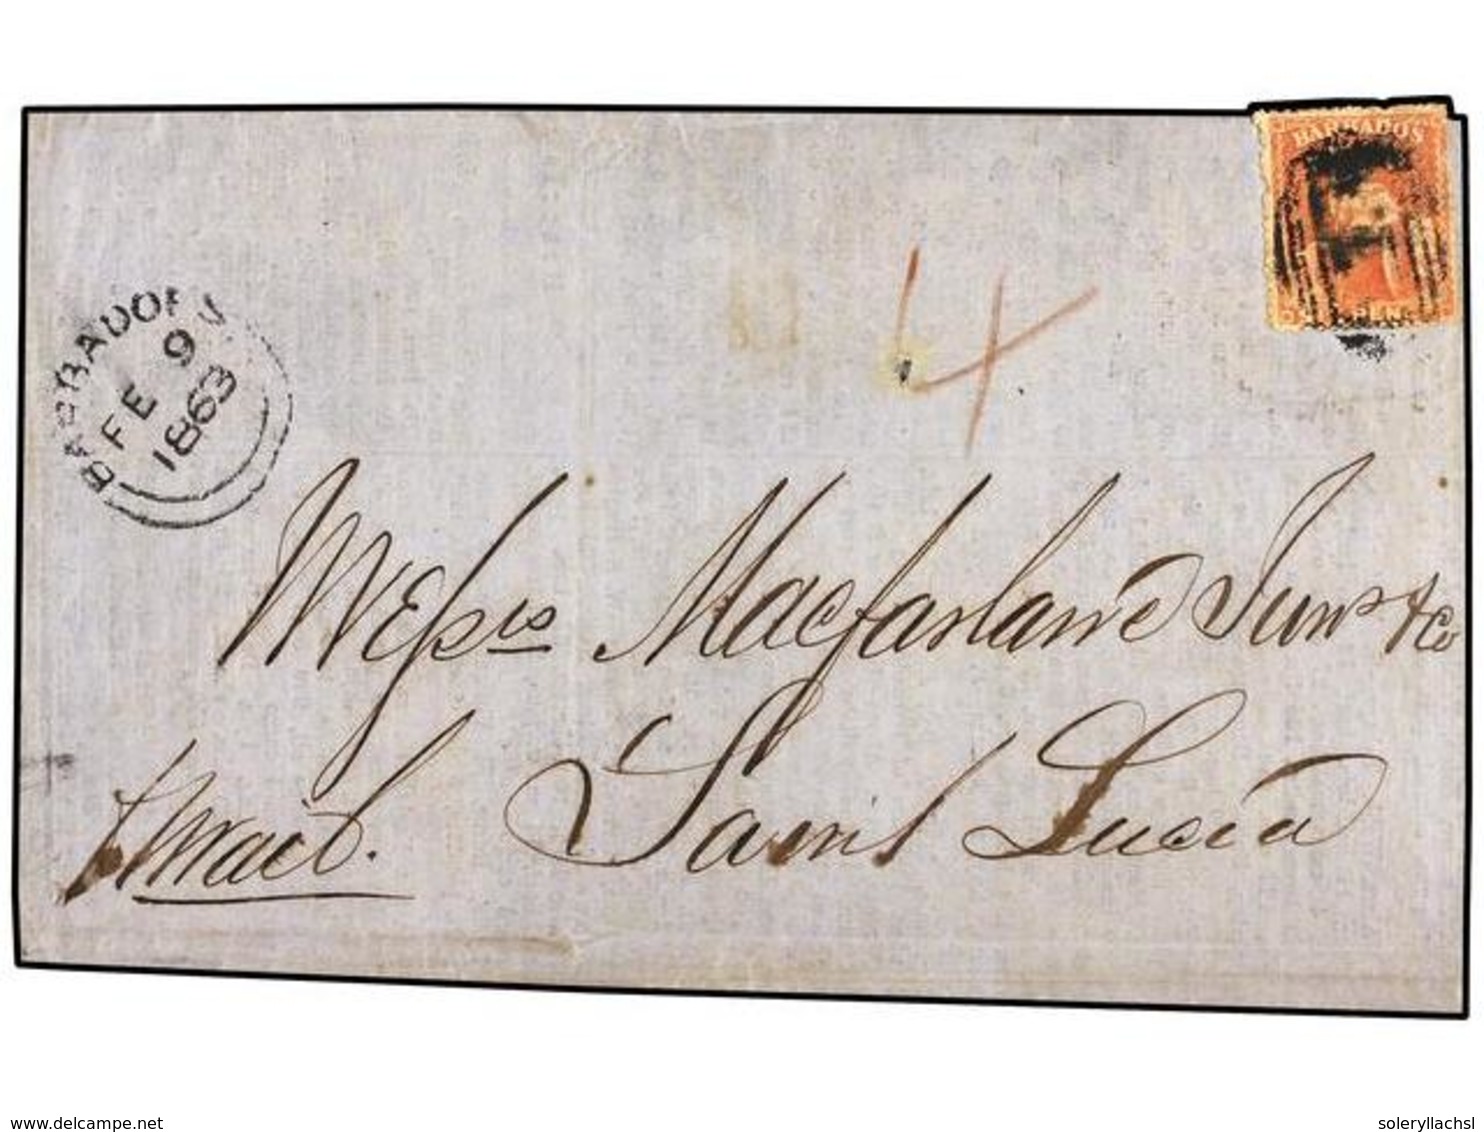 BARBADOS
BARBADOES
FE 9
1863
4
Messrs Macfarlane Junr & Co
Saint Lucia
p mail.
www.delcampe.net
soleryllachsl